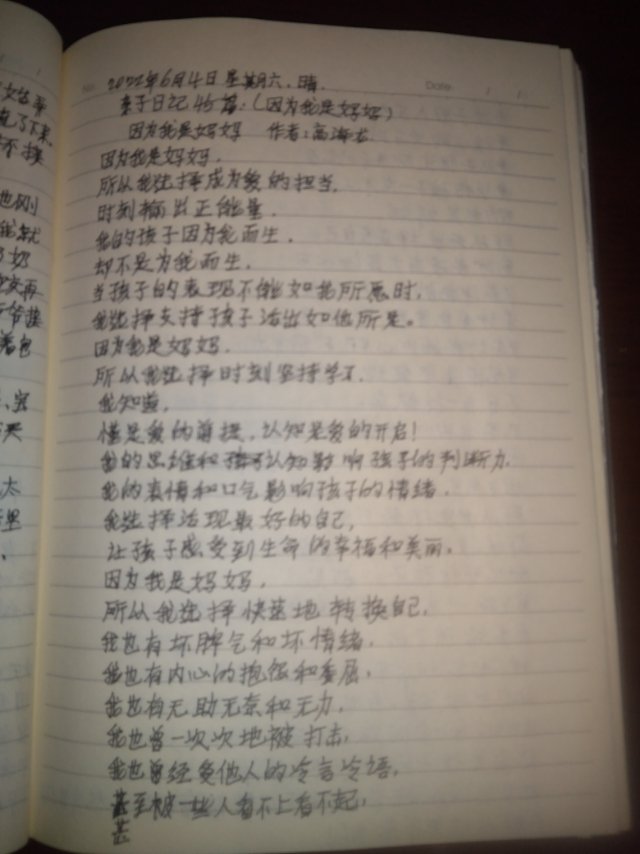 2022年6月4日 星期六.晴.
Date
亲子日记45篇:(因为我是妈妈)
因为我是妈妈 作者:高海
因为我是妈妈.
所以我选择成为爱的担当,
时刻输出正能量.
我的孩子因为我而生.
却不是为我而生.
当孩子的表现不能如我所愿时,
我选择支持孩子活出如他所是。
因为我是妈妈.
所以我选择时刻坚持学习.
我知道,
懂是爱的前提,认知是爱的开启!
我的思维和认知影响孩子的判断力.
我的表情和口气影响孩子的情绪.
我选择活现最好的自己,
让孩子感受到生命的幸福和美丽。
因为我是妈妈.
所以我选择快速地转换自己.
我也有坏脾气和坏情绪.
我也有内心的抱怨和委屈,
我也有无助无奈和无力.
我也曾一次次地被打击,
我也曾经受他人的冷言冷语,
甚至被一些人看不上看不起,
甚